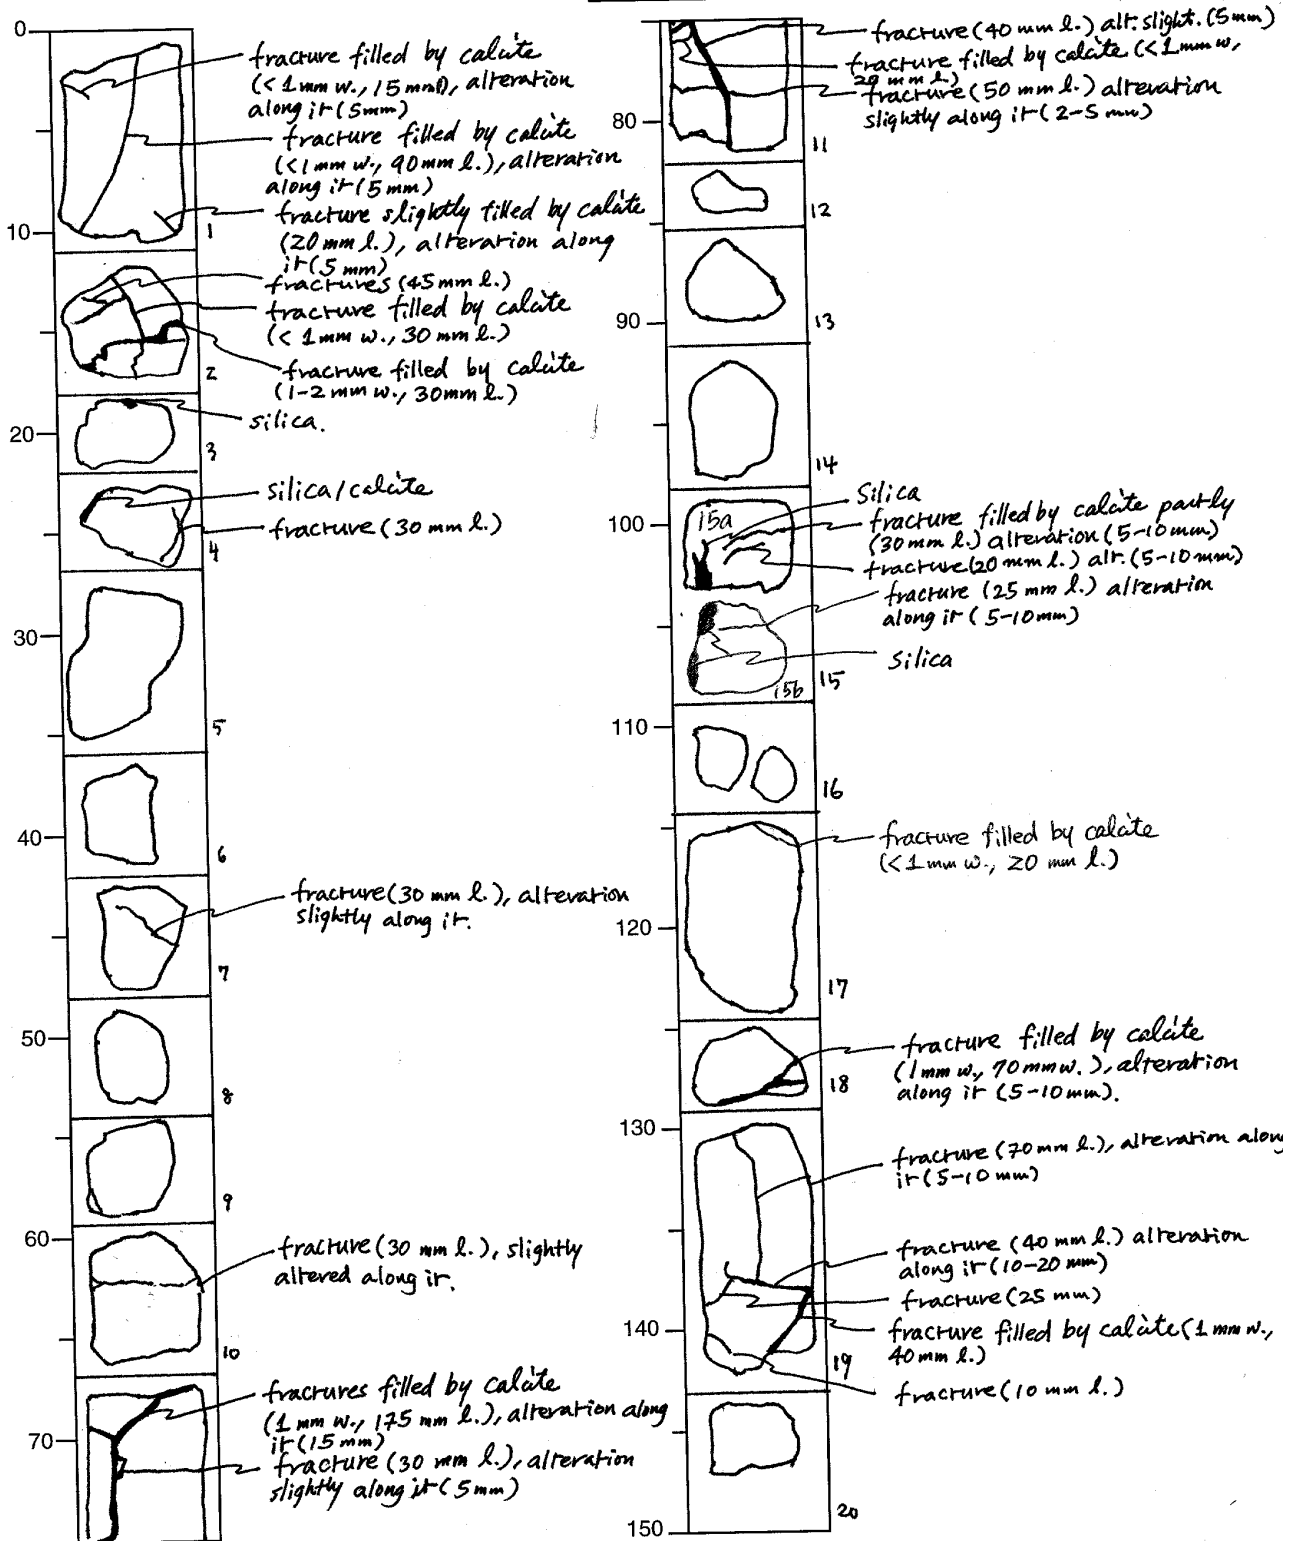 0
fracture filled by calcite
(<1mm w., 15 mml), alteration
along it (5mm)
fracture filled by calcite
(<1mm w., 90mm l.), alteration
along it (5mm)
fracture slightly filled by calcite
(20mm l.), alteration along
it (5mm)
1
10
fractures (45mm l.)
fracture filled by calcite
(<1mm w., 30mm l.)
fracture filled by calcite
(1-2mm w., 30mm l.)
2
silica.
20
3
silica/calcite
fracture (30 mm l.)
4
30
5
40
6
fracture (30 mm l.), alteration
slightly along it.
7
50
8
9
60
fracture (30 mm l.), slightly
altered along it.
10
fractures filled by calcite
(1 mm w., 175 mm l.), alteration along
it (15 mm)
70
fracture (30 mm l.), alteration
slightly along it (5mm)
fracture (40 mm l.) alt. slight. (5mm)
fracture filled by calcite (<1mm w.,
20 mm l.)
fracture (50 mm l.) alteration
slightly along it (2-5mm)
80
11
12
13
90
14
Silica
100
15a
fracture filled by calcite partly
(30mm l.) alteration (5-10mm)
fracture (20mm l.) alt. (5-10mm)
fracture (25 mm l.) alteration
along it (5-10mm)
silica
15
15b
110
16
fracture filled by calcite
(<1mm w., 20 mm l.)
120
17
fracture filled by calcite
(1mm w., 70mm w.), alteration
along it (5-10mm).
18
130
fracture (70mm l.), alteration along
it (5-10 mm)
fracture (40mm l.) alteration
along it (10-20 mm)
fracture (25 mm)
fracture filled by calcite (1 mm w.,
40mm l.)
140
19
fracture (10 mm l.)
20
150